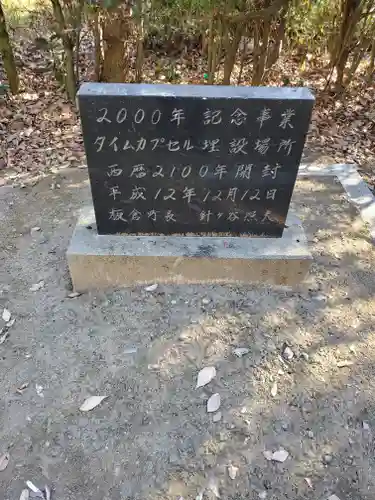 2000年 記念事業
タイムカプセル埋設場所
西暦2100年開封
平成12年12月12日
板倉町長 針ヶ谷照夫